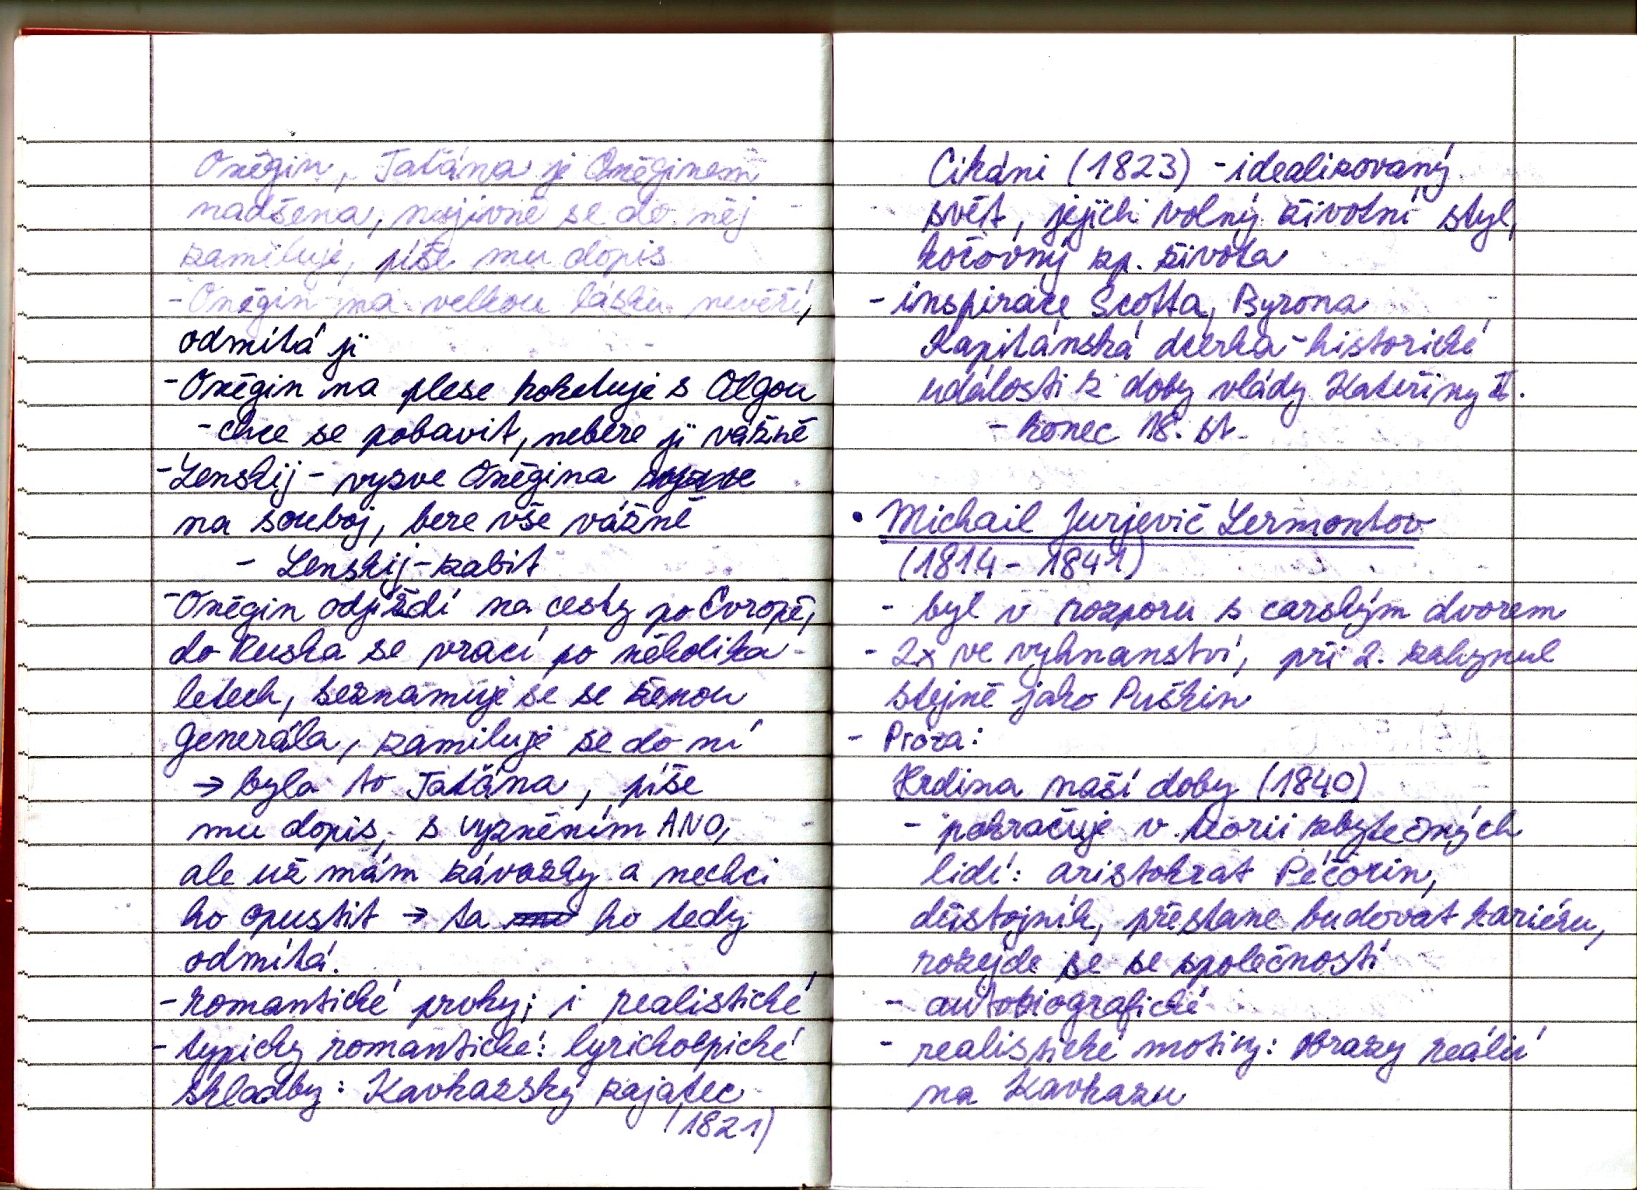 Oněgin, Taťána je Oněginem
nadšena, najivně se do něj
zamiluje, píše mu dopis
- Oněgin na velkou lásku nevěří,
odmítá ji
- Oněgin na plese koketuje s Olgou
- chce se pobavit, nebere ji vážně
- Lenskij - vyzve Oněgina
na souboj, bere vše vážně
- Lenskij - zabit
- Oněgin odjíždí na cesty po Evropě,
do Ruska se vrací po několika
letech, seznamuje se se ženou
generála, zamiluje se do ní
→ byla to Taťána, píše
mu dopis, s vyzněním ANO,
ale už mám závazky a nechci
ho opustit → ta ho tedy
odmítá.
- romantické prvky; i realistické
- typicky romantické: lyrickoepické
skladby: Kavkazský zajatec
(1821)
Cikáni (1823) - idealizovaný
svět, jejich volný životní styl,
kočovný zp. života
- inspirace Scotta, Byrona
Kapitánská dcerka - historické
události z doby vlády Kateřiny II.
- konec 18. st.
• Michail Jurjevič Lermontov
(1814 - 1841)
- byl v rozporu s carským dvorem
- 2x ve vyhnanství, při 2. zahynul
stejně jako Puškin
- Próza:
Hrdina naší doby (1840)
- pokračuje v teorii zbytečných
lidí: aristokrat Péčorin,
důstojník, přestane budovat kariéru,
rozejde se se společností
- autobiografické
- realistické motivy: obrazy reálií
na Kavkazu